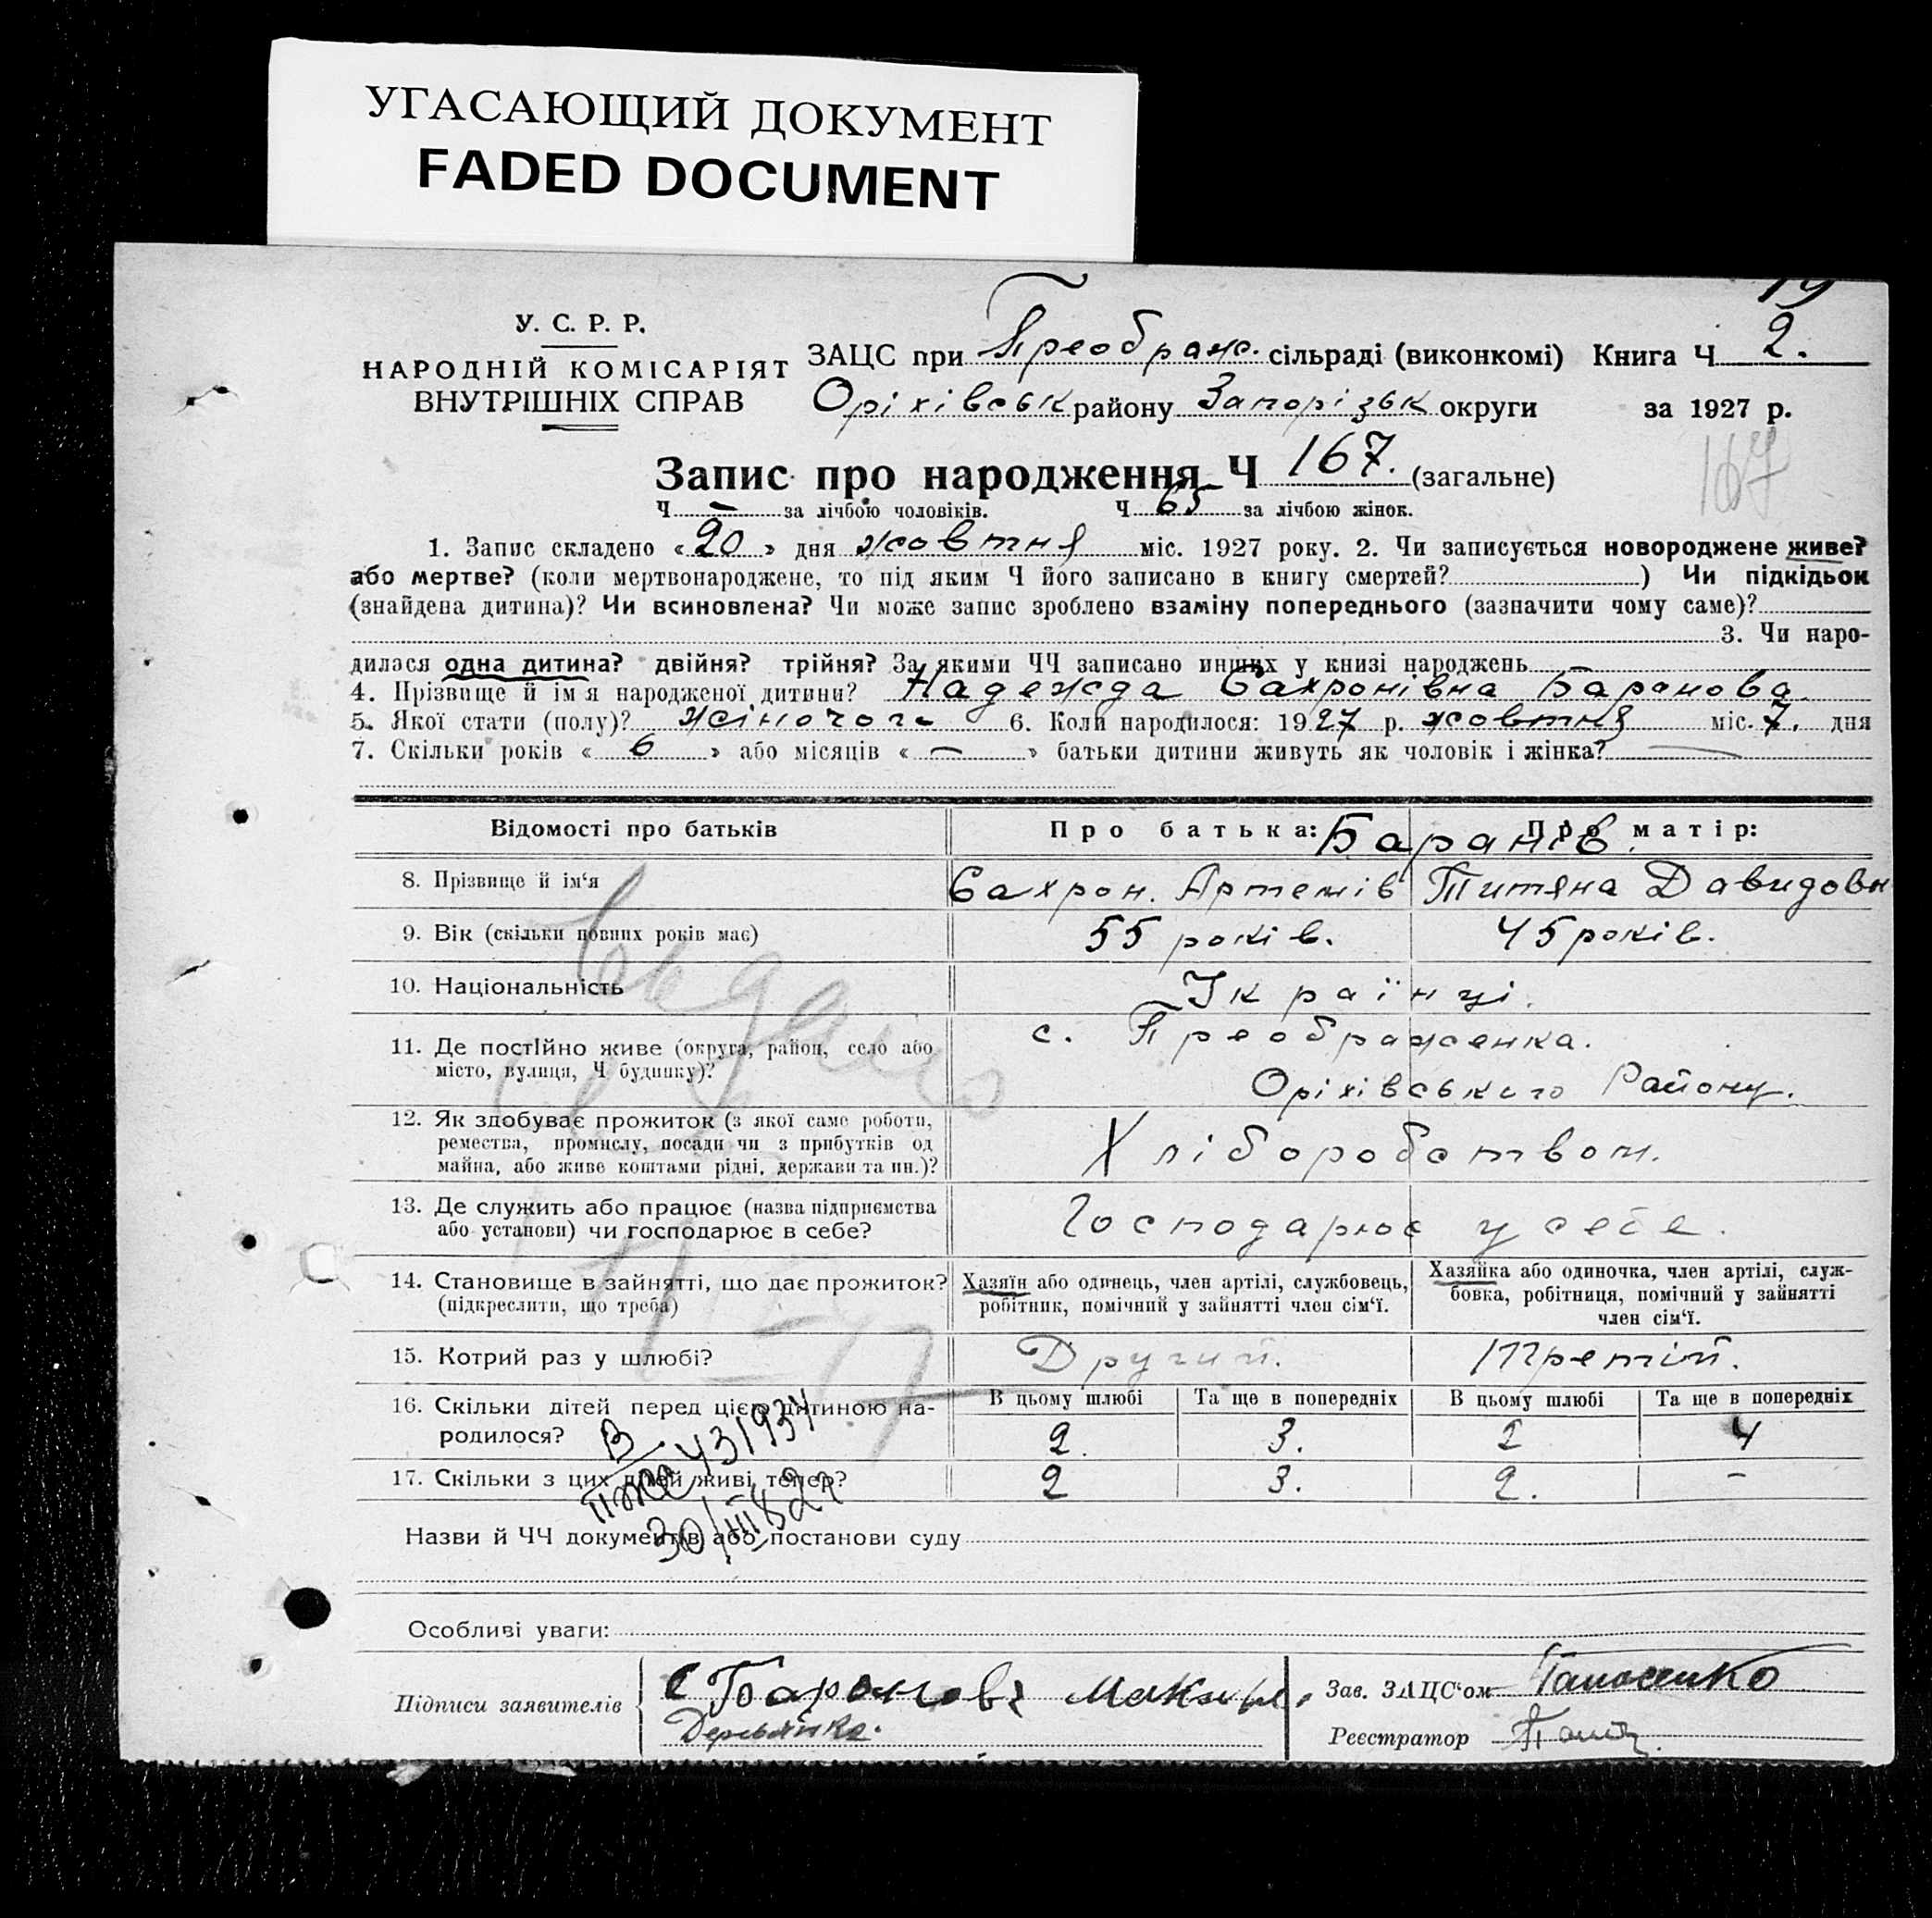 УГАСАЮЩИЙ ДОКУМЕНТ
FADED DOCUMENT
19
У. С. Р. Р.
НАРОДНІЙ КОМІСАРІЯТ
ВНУТРІШНІХ СПРАВ
ЗАЦС при Преображ. сільраді (виконкомі) Книга Ч 2.
Оріхівськ району Запорізьк округи за 1927 р.
Запис про народження Ч 167. (загальне)
167
Ч — за лічбою чоловіків. Ч 65 за лічбою жінок.
1. Запис складено « 20 » дня жовтня міс. 1927 року. 2. Чи записується новороджене живе?
або мертве? (коли мертвонароджене, то під яким Ч його записано в книгу смертей? ) Чи підкідьок
(знайдена дитина)? Чи всиновлена? Чи може запис зроблено взаміну попереднього (зазначити чому саме)?
3. Чи наро-
дилася одна дитина? двійня? трійня? За якими ЧЧ записано инших у книзі народжень —
4. Прізвище й ім'я народженої дитини? Надежда Сахронівна Баранова
5. Якої стати (полу)? жіночого 6. Коли народилося: 1927 р. жовтня міс. 7. дня
7. Скільки років « 6 » або місяців « — » батьки дитини живуть як чоловік і жінка? —
Відомості про батьків Про батька: Про матір:
Баранів.
8. Прізвище й ім'я Сахрон. Артемів Титяна Давидовн
9. Вік (скільки повних років має) 55 років. 45 років.
10. Національність Українці.
11. Де постійно живе (округа, район, село або
місто, вулиця, Ч будинку)?
с. Преображенка.
Оріхівського Району.
12. Як здобуває прожиток (з якої саме роботи,
ремества, промислу, посади чи з прибутків од
майна, або живе коштами рідні, держави та ин.)?
Хліборобством.
13. Де служить або працює (назва підприємства
або установи) чи господарює в себе?
Господарює у себе.
14. Становище в зайнятті, що дає прожиток?
(підкреслити, що треба)
Хазяїн або одинець, член артілі, службовець,
робітник, помічний у зайнятті член сім'ї.
Хазяйка або одиночка, член артілі, служ-
бовка, робітниця, помічний у зайнятті
член сім'ї.
15. Котрий раз у шлюбі? Другий. Третій.
16. Скільки дітей перед цією дитиною на-
родилося?
В цьому шлюбі Та ще в попередніх В цьому шлюбі Та ще в попередніх
2. 3. 2 4
17. Скільки з цих дітей живі тепер? 2 3. 2. –
431934
30/III 82
Назви й ЧЧ документів або постанови суду
Особливі уваги:
Підписи заявителів
Деревянка.
Зав. ЗАЦС'ом Панасенко
Реєстратор